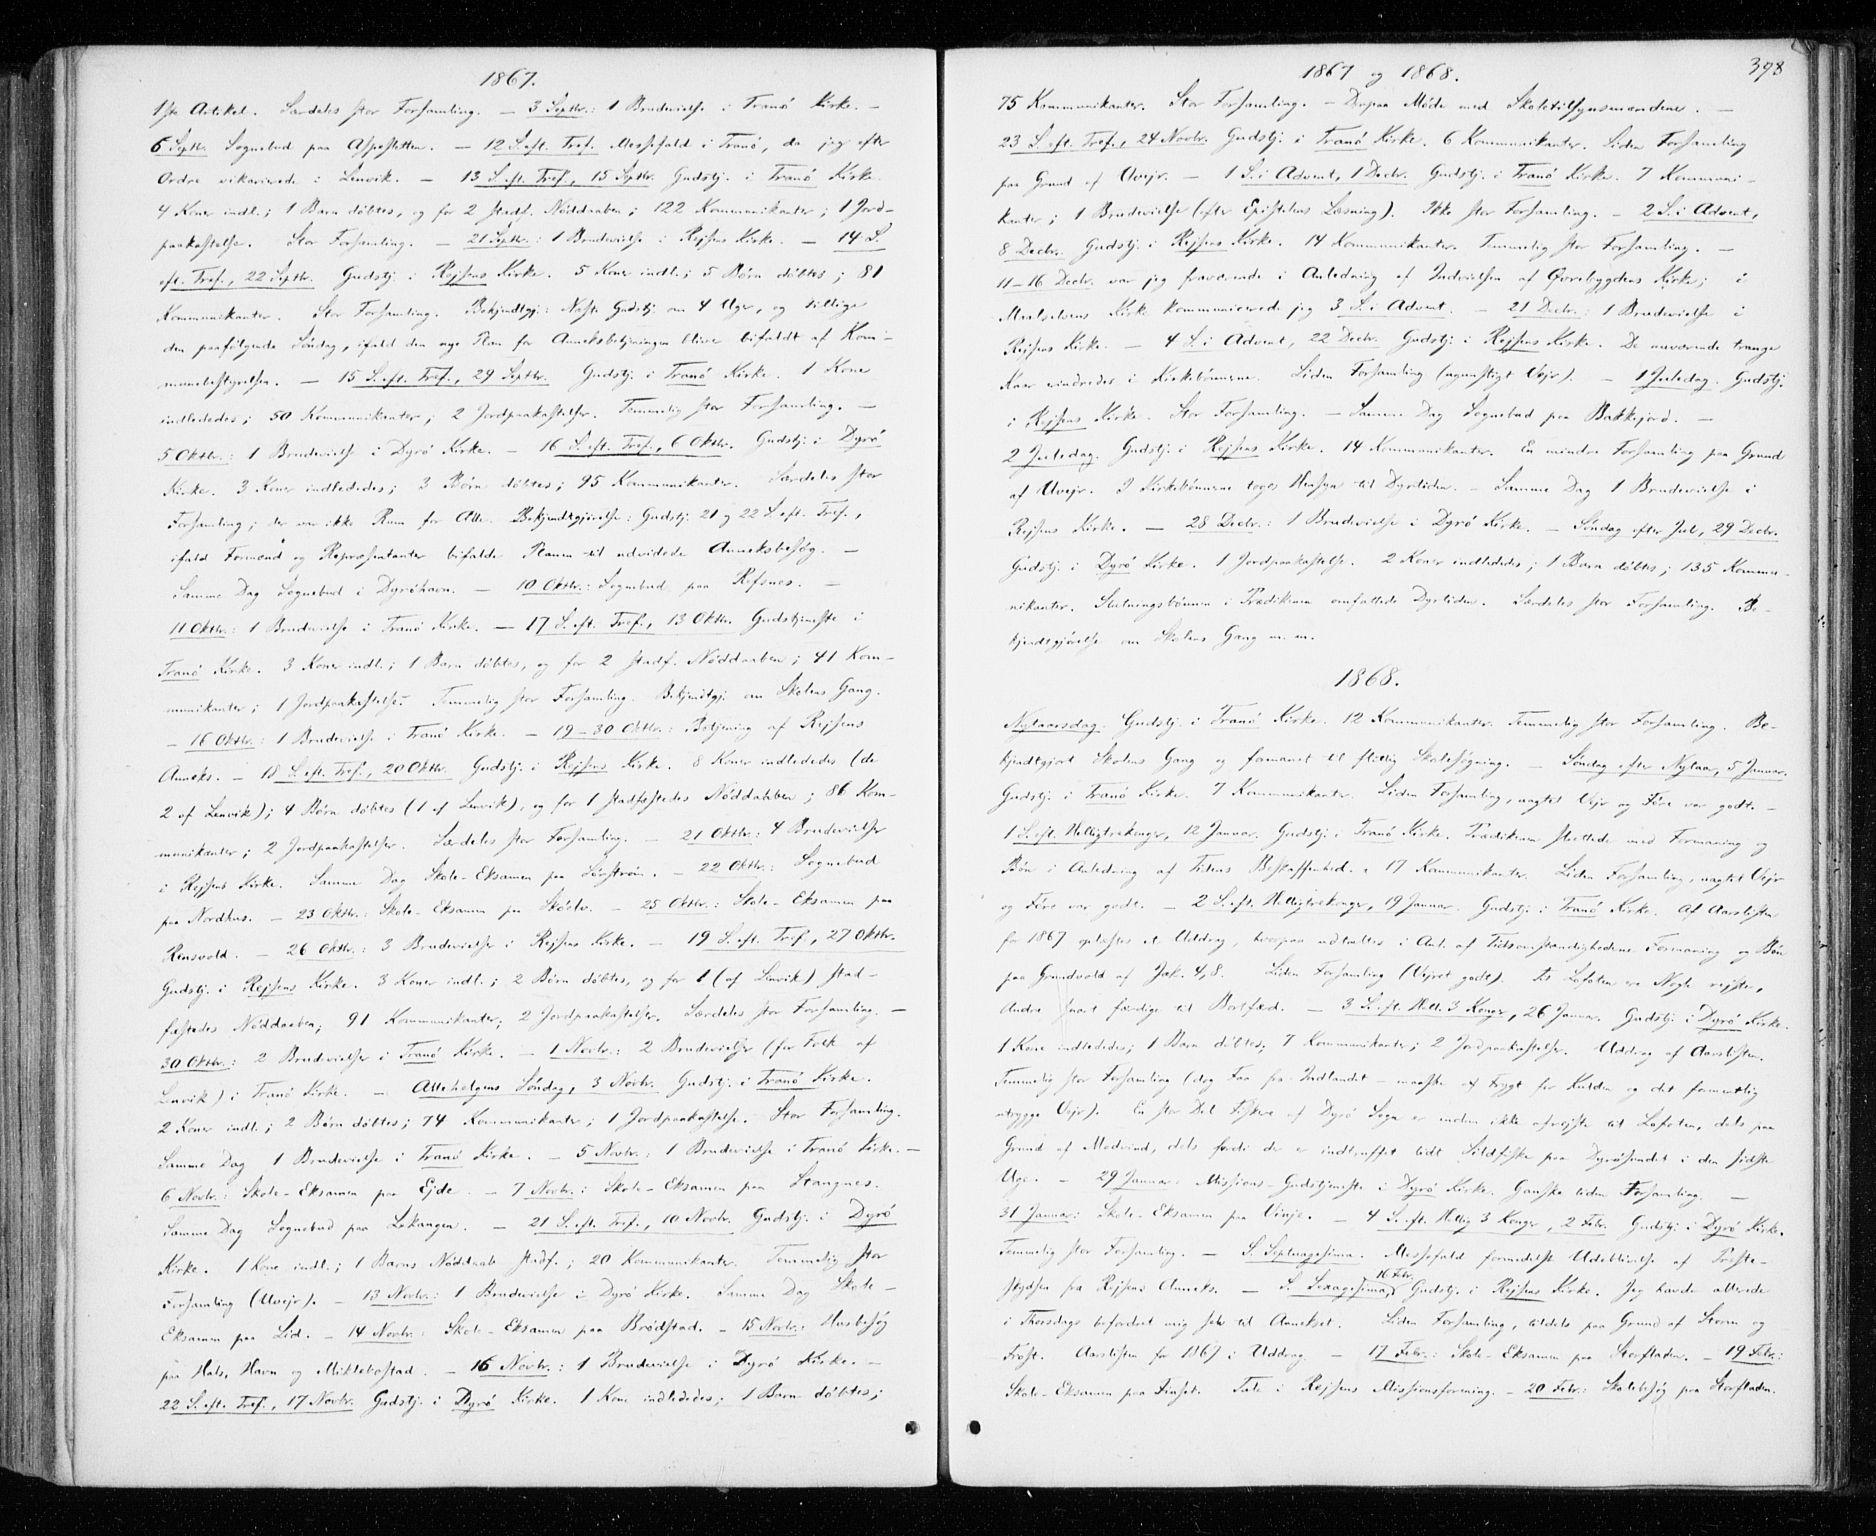 1867.
1ste Artikel. Særdeles stor Forsamling. — 3 Septbr.: 1 Brudevielse i Tranö Kirke. —
6 Septbr. Sognebud paa Aspesletten. — 12 S. eft. Tref. Messefald i Tranö, da jeg efter
Ordre vikarierede i Lenvik. — 13 S. eft. Tref., 15 Septbr. Gudstj. i Tranö Kirke.
4 Koner indl.; 1 Barn döbtes, og for 2 stadf. Nöddaaben; 122 Kommunikanter; 1 Jord-
paakastelse. Stor Forsamling. — 21 Septbr.: 1 Brudevielse i Rejsens Kirke. — 14 S.
eft. Tref., 22 Septbr. Gudstj. i Rejsens Kirke. 5 Koner indl.; 5 Börn döbtes; 81
Kommunikanter. Stor Forsamling. Bekjendtgj.: Næste Gudstj. om 4 Uger, og tillige
den paafölgende Söndag, ifald den nye Plan for Anneksbetjeningen bliver bifaldt af Kom-
munebestyrelsen. — 15 S. eft. Tref., 29 Septbr. Gudstj. i Tranö Kirke. 1 Kone
indlededes; 50 Kommunikanter; 2 Jordpaakastelser. Temmelig stor Forsamling. —
5 Oktbr.: 1 Brudevielse i Dyrö Kirke. — 16 S. eft. Tref., 6 Oktbr. Gudstj. i Dyrö
Kirke. 3 Koner indlededes; 3 Börn döbtes; 95 Kommunikanter. Særdeles stor
Forsamling; der var ikke Rum for Alle. Bekjendtgjörelse: Gudstj. 21 og 22 S. eft. Tref.,
ifald Formænd og Repræsentanter bifalde Planen til udvidede Anneksbesög. —
Samme Dag Sognebud i Dyröhavn. — 10 Oktbr.: Sognebud paa Refsnes. —
11 Oktbr.: 1 Brudevielse i Tranö Kirke. — 17 S. eft. Tref., 13 Oktbr. Gudstjeneste i
Tranö Kirke. 3 Koner indl.; 1 Barn döbtes, og for 2 stadf. Nöddaaben; 41 Kom-
munikanter; 1 Jordpaakastelse. Temmelig stor Forsamling. Bekjendtgj. om Skolens Gang.
— 16 Oktbr.: 1 Brudevielse i Tranö Kirke. — 19–30 Oktbr.: Betjening af Rejsens
Anneks. — 18 S. eft. Tref., 20 Oktbr. Gudstj. i Rejsens Kirke. 8 Koner indlededes (de
2 af Lenvik); 4 Börn döbtes (1 af Lenvik), og for 1 stadfæstedes Nöddaaben; 86 Kom-
munikanter; 2 Jordpaakastelser. Særdeles stor Forsamling. — 21 Oktbr.: 4 Brudevielser
i Rejsens Kirke. Samme Dag Skole-Eksamen paa Sörström. — 22 Oktbr.: Sognebud
paa Nordhus. — 23 Oktbr.: Skole-Eksamen paa Sköelv. — 25 Oktbr.: Skole-Eksamen paa
Rensvold. — 26 Oktbr.: 3 Brudevielser i Rejsens Kirke. — 19 S. eft. Tref., 27 Oktbr.
Gudstj. i Rejsens Kirke. 3 Koner indl.; 2 Börn döbtes, og for 1 (af Lenvik) stad-
fæstedes Nöddaaben; 91 Kommunikanter; 2 Jordpaakastelser. Særdeles stor Forsamling. —
30 Oktbr.: 2 Brudevielser i Tranö Kirke. — 1 Novbr.: 2 Brudevielser (for Folk af
Lenvik) i Tranö Kirke. — Allehelgens Söndag, 3 Novbr. Gudstj. i Tranö Kirke.
2 Koner indl.; 2 Börn döbtes; 74 Kommunikanter; 1 Jordpaakastelse. Stor Forsamling.
Samme Dag 1 Brudevielse i Tranö Kirke. — 5 Novbr.: 1 Brudevielse i Tranö Kirke. —
6 Novbr.: Skole-Eksamen paa Ejde. — 7 Novbr.: Skole-Eksamen paa Stangnes.
Samme Dag Sognebud paa Lekangen. — 21 S. eft. Tref., 10 Novbr. Gudstj. i Dyrö
Kirke. 1 Kone indl.; 1 Barns Nöddaab stadf.; 20 Kommunikanter. Temmelig stor
Forsamling (Uvejr). — 13 Novbr.: 1 Brudevielse i Dyrö Kirke. Samme Dag Skole-
Eksamen paa Lid. — 14 Novbr.: Skole-Eksamen paa Brödstad. — 15 Novbr.: Husbesög
paa Hals, Havn og Miklebostad. — 16 Novbr.: 1 Brudevielse i Dyrö Kirke. —
22 S. eft. Tref., 17 Novbr. Gudstj. i Dyrö Kirke. 1 Kone indlededes; 1 Barn döbtes;
1867 og 1868.
398
75 Kommunikanter. Stor Forsamling. — Derpaa Möde med Skoletilsynsmændene. —
23 S. eft. Tref., 24 Novbr. Gudstj. i Tranö Kirke. 6 Kommunikanter. Liden Forsamling
paa Grund af Uvejr. — 1 S. i Advent, 1 Decbr. Gudstj. i Tranö Kirke. 7 Kommuni-
kanter; 1 Brudevielse (efter Epistelens Læsning). Ikke stor Forsamling. — 2 S. i Advent,
8 Decbr. Gudstj. i Rejsens Kirke. 14 Kommunikanter. Temmelig stor Forsamling. —
11–16 Decbr. var jeg fraværende i Anledning af Indvielsen af Övrebygdens Kirke; i
Maalselvens Kirke kommunicerede jeg 3 S. i Advent. — 21 Decbr.: 1 Brudevielse i
Rejsens Kirke. — 4 S. i Advent, 22 Decbr. Gudstj. i Rejsens Kirke. De nuværende trange
Kaar erindredes i Kirkebönnerne. Liden Forsamling (ugunstigt Vejr). — 1 Juledag. Gudstj.
i Rejsens Kirke. Stor Forsamling. — Samme Dag Sognebud paa Bakkejord. —
2 Juledag. Gudstj. i Rejsens Kirke. 14 Kommunikanter. En mindre Forsamling paa Grund
af Uvejr. I Kirkebönnerne toges Hensyn til Dyrtiden. — Samme Dag 1 Brudevielse i
Rejsens Kirke. — 28 Decbr.: 1 Brudevielse i Dyrö Kirke. — Söndag efter Jul, 29 Decbr.
Gudstj. i Dyrö Kirke. 1 Jordpaakastelse. 2 Koner indlededes; 1 Barn döbtes; 135 Kommu-
nikanter. Slutningsbönnen i Prædikenen omfattede Dyrtiden. Særdeles stor Forsamling. Be-
kjendtgjörelse om Skolens Gang m. m.
1868.
Nytaarsdag. Gudstj. i Tranö Kirke. 12 Kommunikanter. Temmelig stor Forsamling. Be-
kjendtgjort Skolens Gang og formanet til flittig Skolesögning. — Söndag efter Nytaar, 5 Januar.
Gudstj. i Tranö Kirke. 7 Kommunikanter. Liden Forsamling, uagtet Vejr og Före var godt. —
1 S. eft. Helligtrekonger, 12 Januar. Gudstj. i Tranö Kirke. Prædikenen sluttede med Formaning og
Bön i Anledning af Tidens Beskaffenhed. 17 Kommunikanter. Liden Forsamling, uagtet Vejr
og Före var godt. — 2 S. eft. Helligtrekonger, 19 Januar. Gudstj. i Tranö Kirke. Af Aarslisten
for 1867 oplæstes et Uddrag, hvorpaa udtaltes i Anl. af Tidsomstændighederne Formaning og Bön
paa Grundvold af Jak. 4, 8. Liden Forsamling (Vejret godt). Til Lofoten ere Nogle rejste,
Andre snart færdige til Bortfærd. — 3 S. eft. Hell. 3 Konger, 26 Januar. Gudstj. i Dyrö Kirke.
1 Kone indlededes; 1 Barn döbtes; 7 Kommunikanter; 2 Jordpaakastelser. Uddrag af Aarslisten.
Temmelig stor Forsamling (dog Faa fra Indlandet — maaske af Frygt for Kulden og det formentlig
utrygge Vejr). En stor Del Fiskere af Dyrö Sogn er endnu ikke afrejste til Lofoten, dels paa
Grund af Modvind, dels fordi der er indtruffet lidt Sildfiske paa Dyrösundet i den sidste
Uge. — 29 Januar: Missions-Gudstjeneste i Dyrö Kirke. Ganske liden Forsamling. —
31 Januar: Skole-Eksamen paa Vinje. — 4 S. eft. Hellig 3 Konger, 2 Febr. Gudstj. i Dyrö Kirke.
Temmelig stor Forsamling. — S. Septuagesima. Messefald formedelst Udeblivelse af Præste-
skydsen fra Rejsens Anneks. — S. Sexagesima, 16 Febr. Gudstj. i Rejsens Kirke. Jeg havde allerede
i Thorsdags befordret mig selv til Annekset. Liden Forsamling, tildels paa Grund af Storm og
Frost. Aarslisten for 1867 i Uddrag — 17 Febr.: Skole-Eksamen paa Storfladen. — 19 Febr.:
Skole-Eksamen paa Finset. Tale i Rejsens Missionsforening. — 20 Febr.: Skolebesög paa Storfladen.